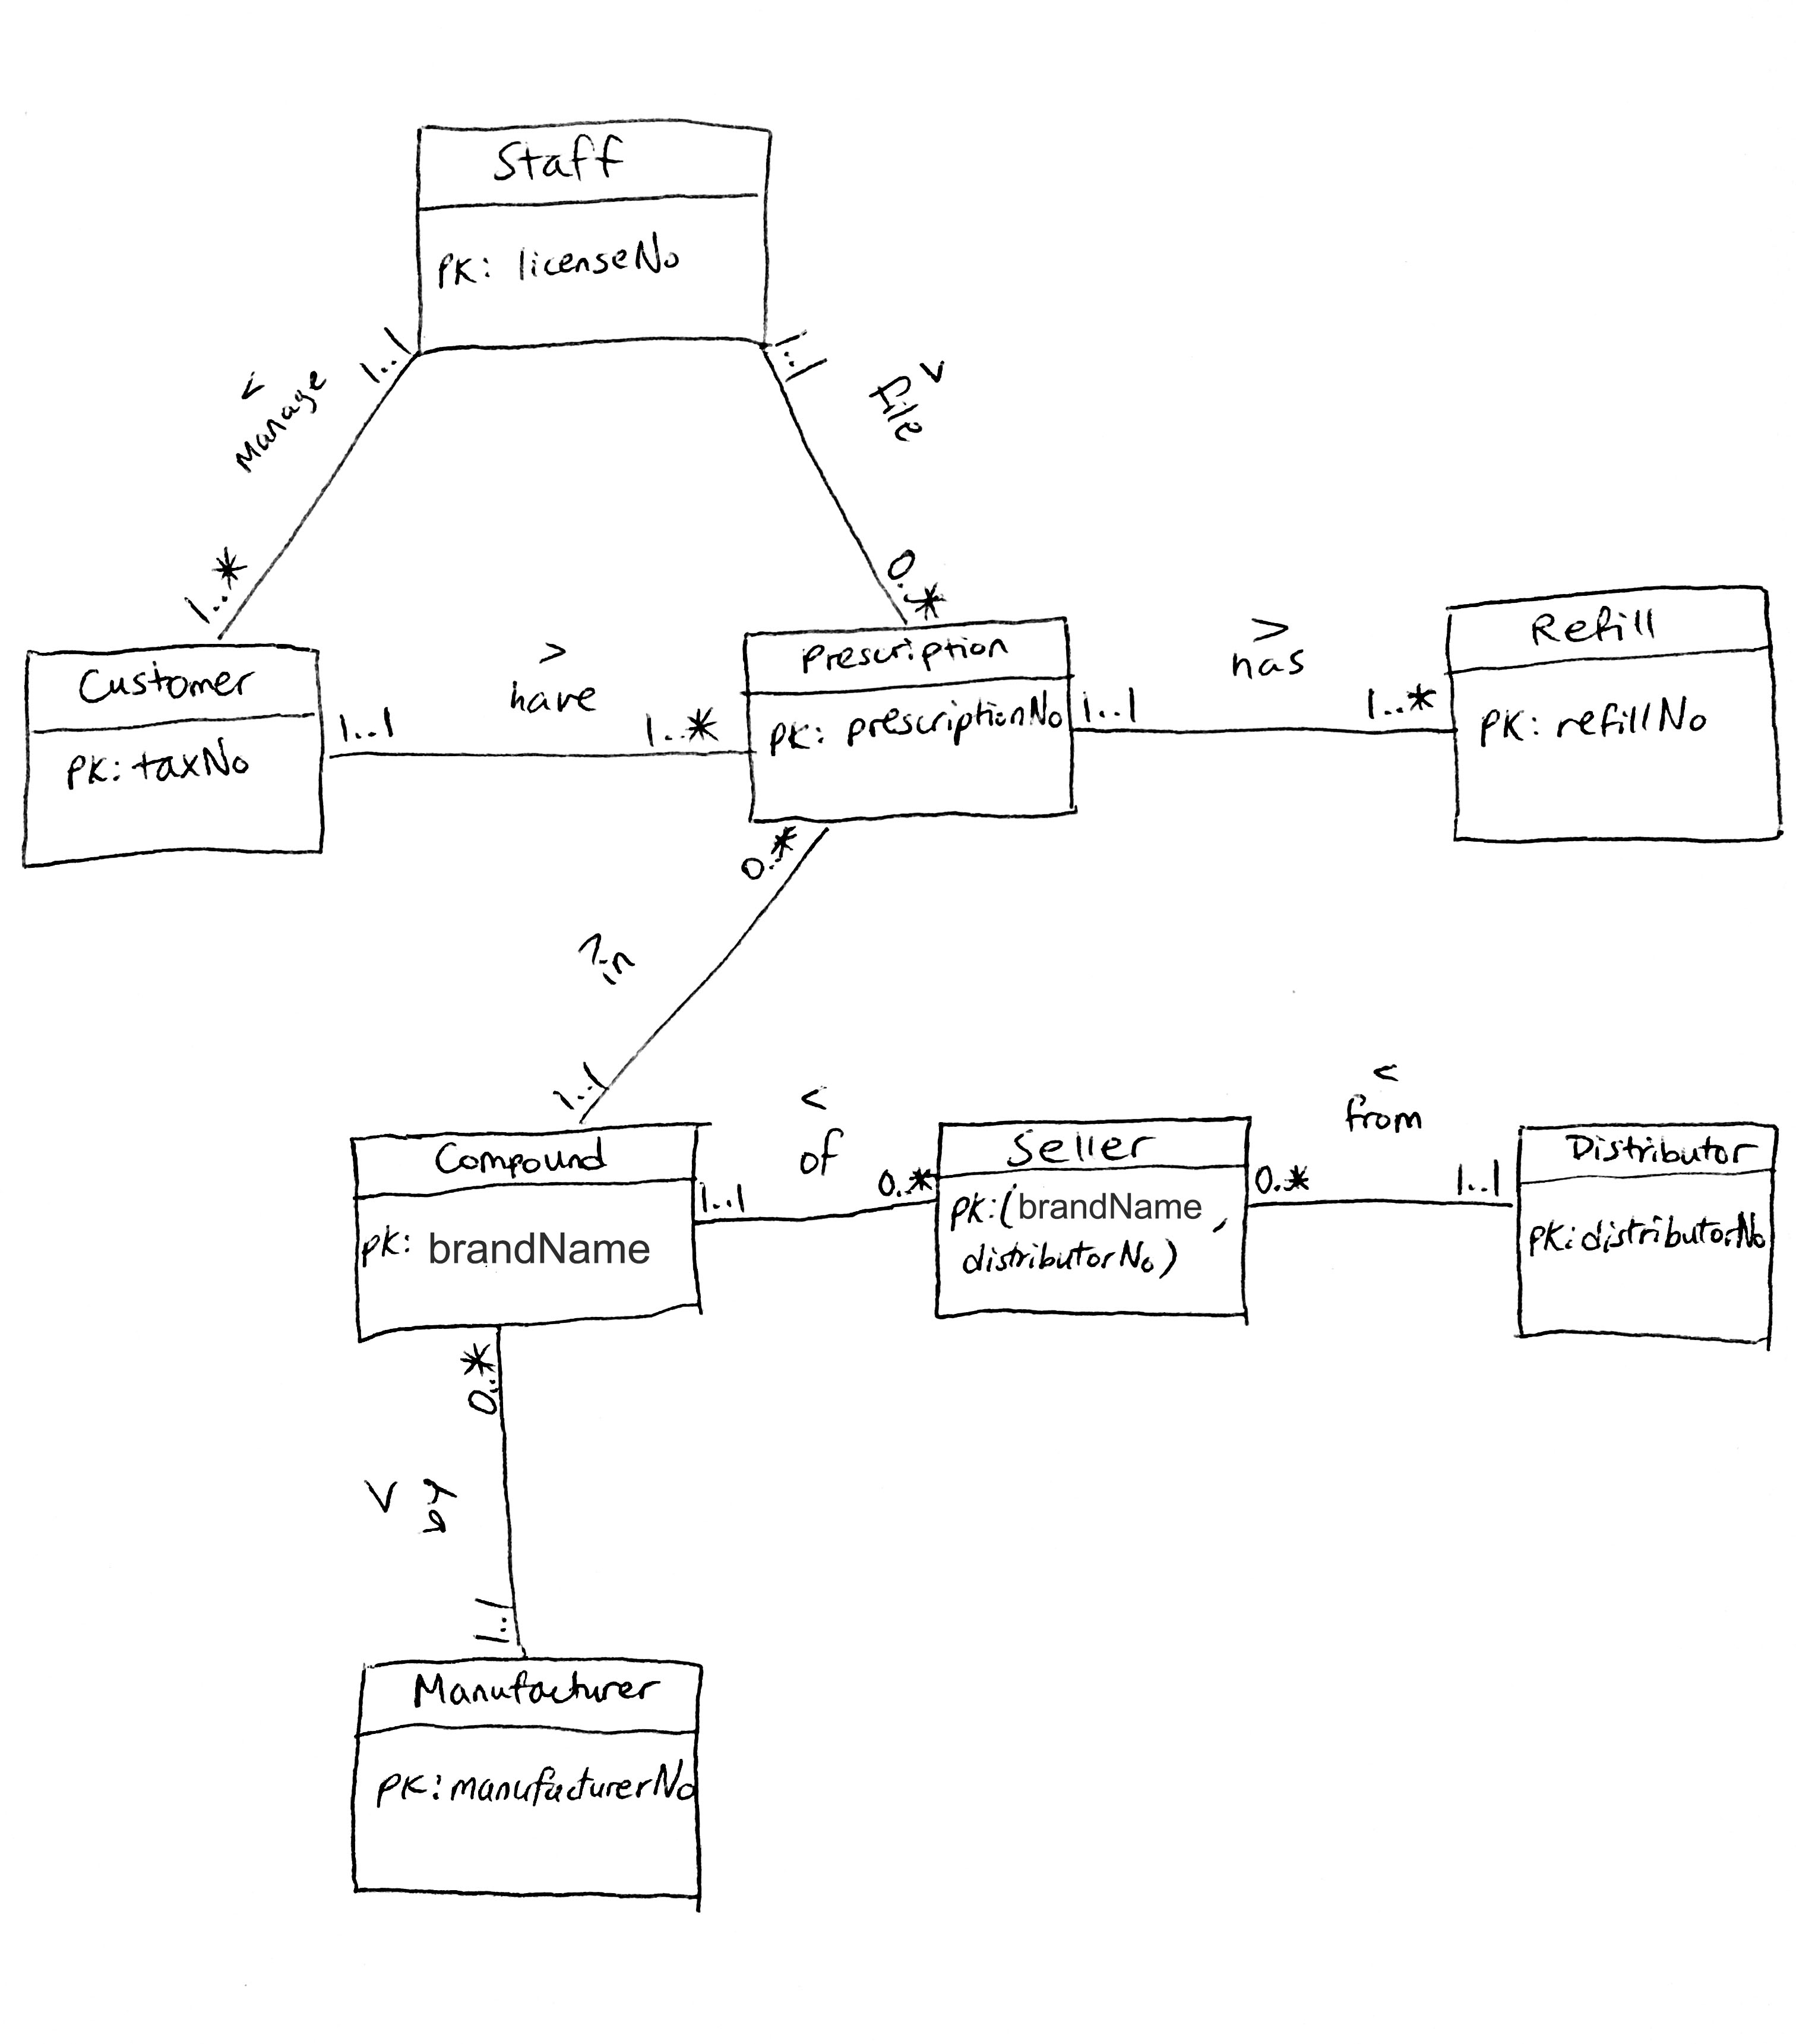 Staff
PK: licenseNo
1..1
1..1
<
Manage
v
File
1..*
0..*
Customer
PK: taxNo
>
have
1..1
1..*
Prescription
PK: prescriptionNo
>
has
1..1
1..*
Refill
PK: refillNo
0..*
in
1..1
Compound
PK: brandName
<
of
1..1
0..*
Seller
PK: (brandName,
distributorNo)
<
from
0..*
1..1
Distributor
PK: distributorNo
0..*
v
by
1..1
Manufacturer
PK: manufacturerNo